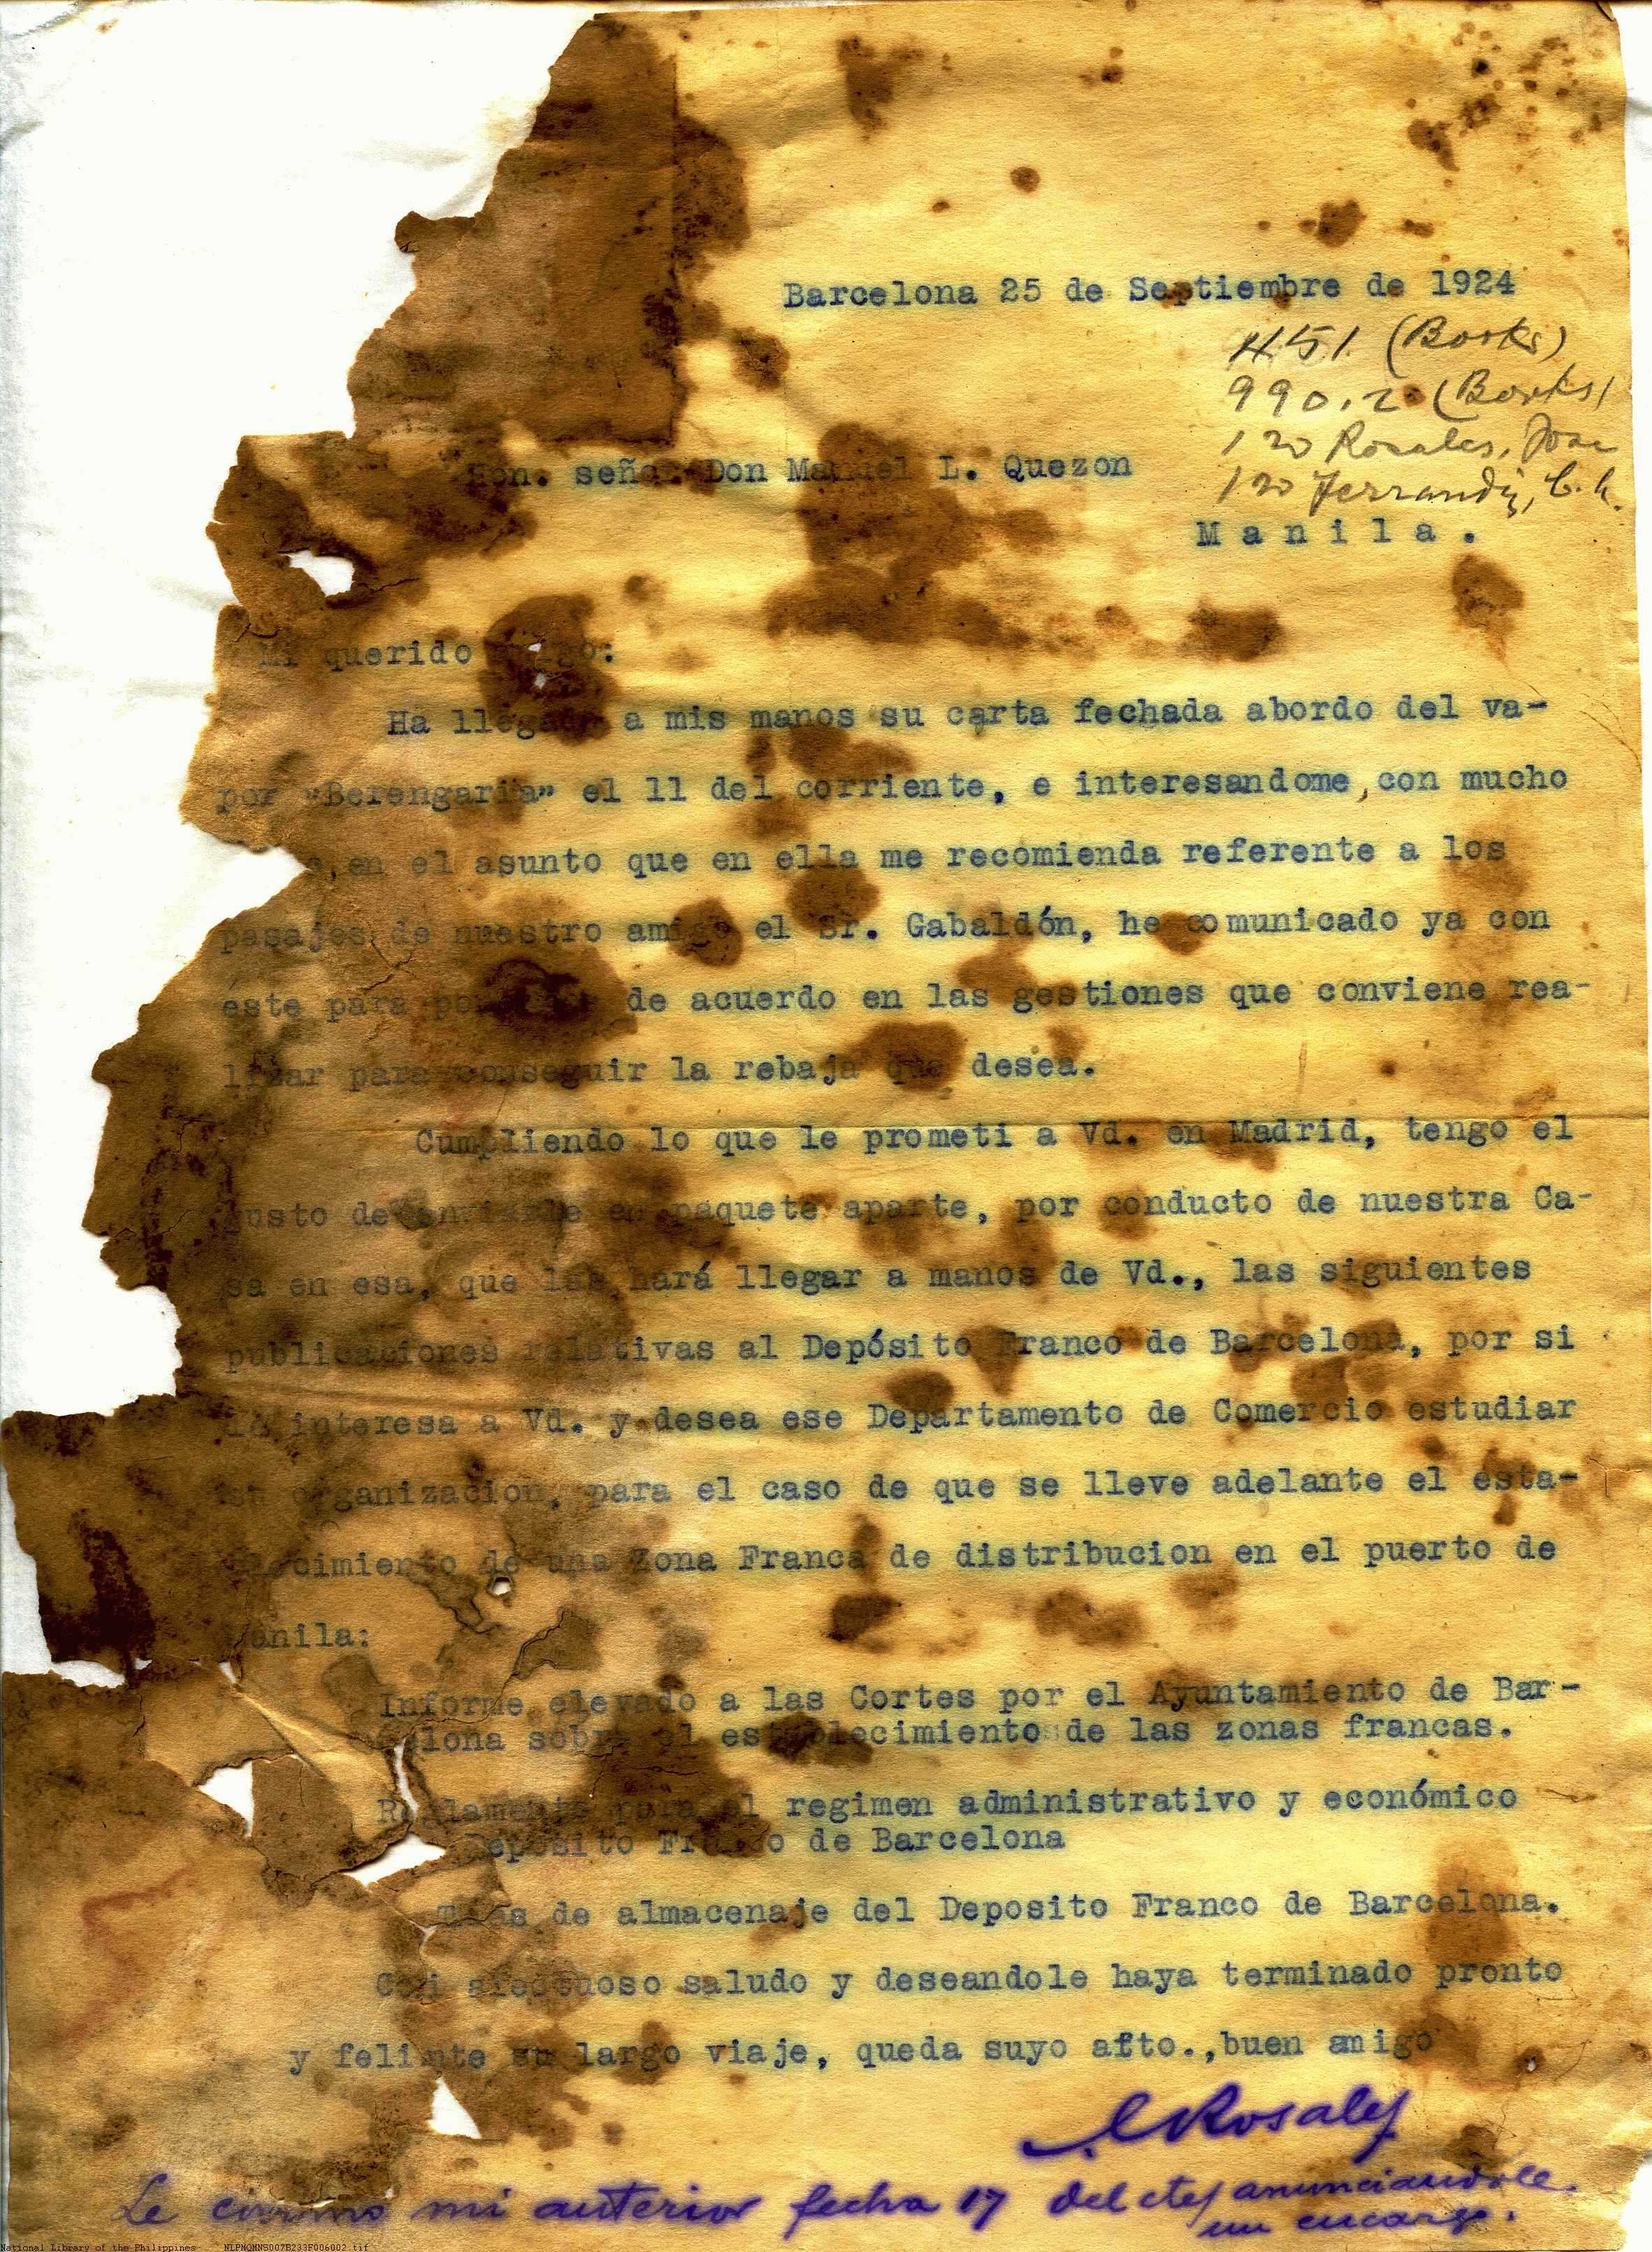 Barcelona 25 de Septiembre de 1924
H51. (Books)
990.2 (Books)
120 Rosales, Jose
120 Ferrandiz, C. h.
Hon. señor Don Manuel L. Quezon
Manila.
Mi querido amigo:
Ha llegado a mis manos su carta fechada abordo del va-
por "Berengaria" el 11 del corriente, e interesandome, con mucho
, en el asunto que en ella me recomienda referente a los
pasajes de nuestro amigo el Sr. Gabaldón, he comunicado ya con
éste para de acuerdo en las gestiones que conviene rea-
lizar para conseguir la rebaja que desea.
Cumpliendo lo que le prometi a Vd. en Madrid, tengo el
gusto de enviarle en paquete aparte, por conducto de nuestra Ca-
sa en esa, que las hará llegar a manos de Vd., las siguientes
publicaciones relativas al Depósito Franco de Barcelona, por si
le interesa a Vd. y desea ese Departamento de Comercio estudiar
su organizacion, para el caso de que se lleve adelante el esta-
blecimiento de una Zona Franca de distribucion en el puerto de
Manila:
Informe elevado a las Cortes por el Ayuntamiento de Bar-
celona sobre el establecimiento de las zonas francas.
Reglamento para el regimen administrativo y económico
Deposito Franco de Barcelona
de almacenaje del Deposito Franco de Barcelona.
Con afectuoso saludo y deseandole haya terminado pronto
y felizmente su largo viaje, queda suyo afto., buen amigo
Rosales
Le confirmo mi anterior fecha 17 del cte, anunciandole
un encargo.
National Library of the Philippines NLPMQMNS007B233F006002.tif